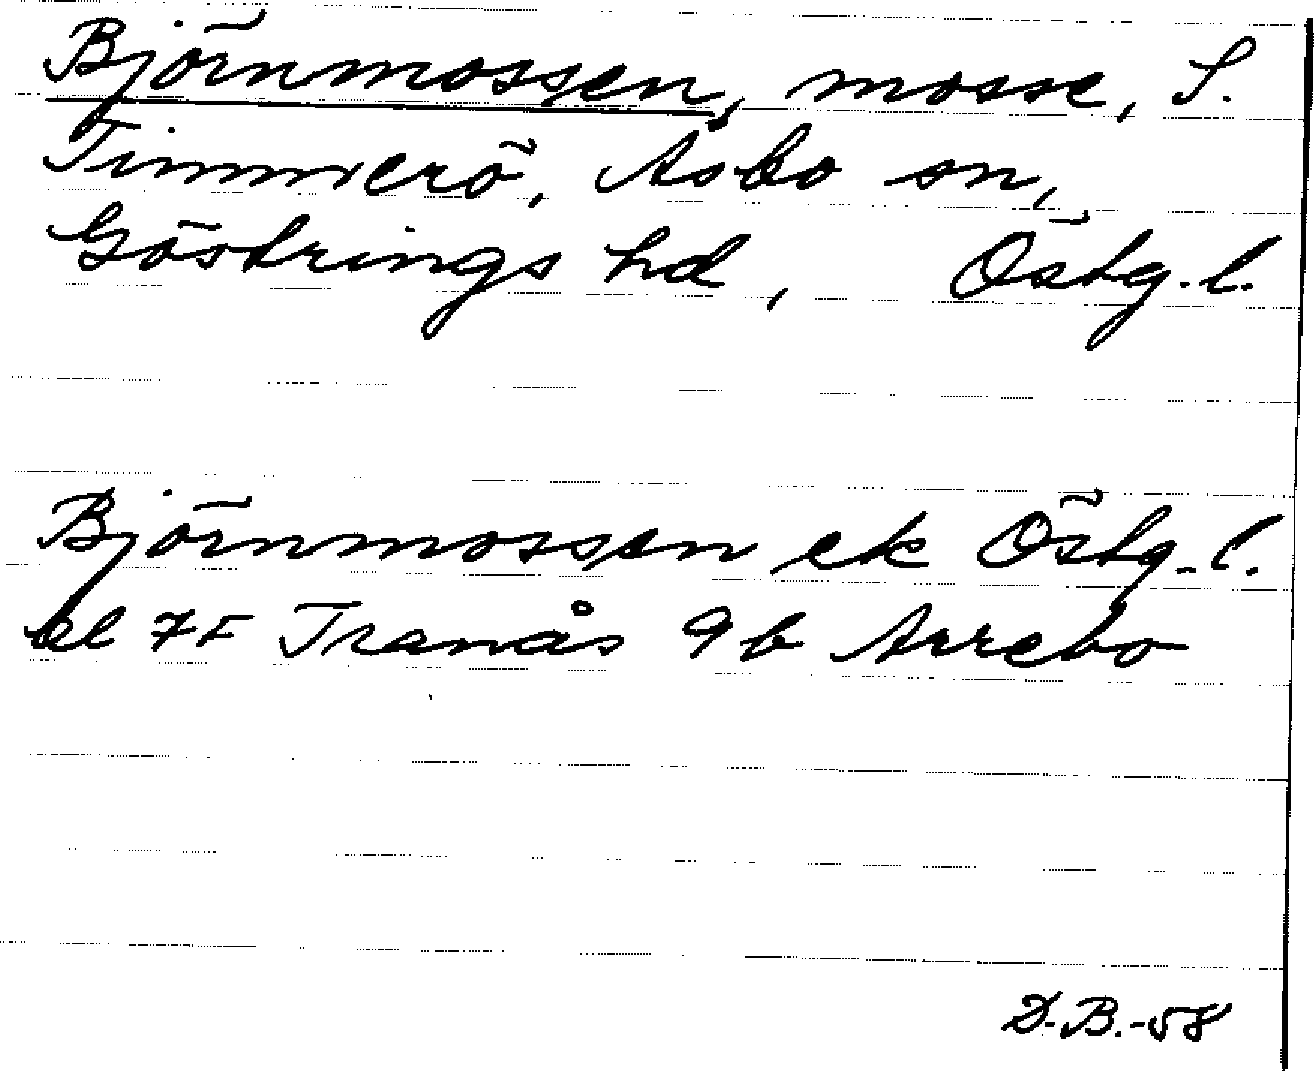 Björnmossen, mosse, S.
Timmerö, Åsbo sn,
Göstrings hd, Östg.l.
Björnmossen ek Östg.l.
bl 7F Tranås 9b Arrebo
D.B.-58